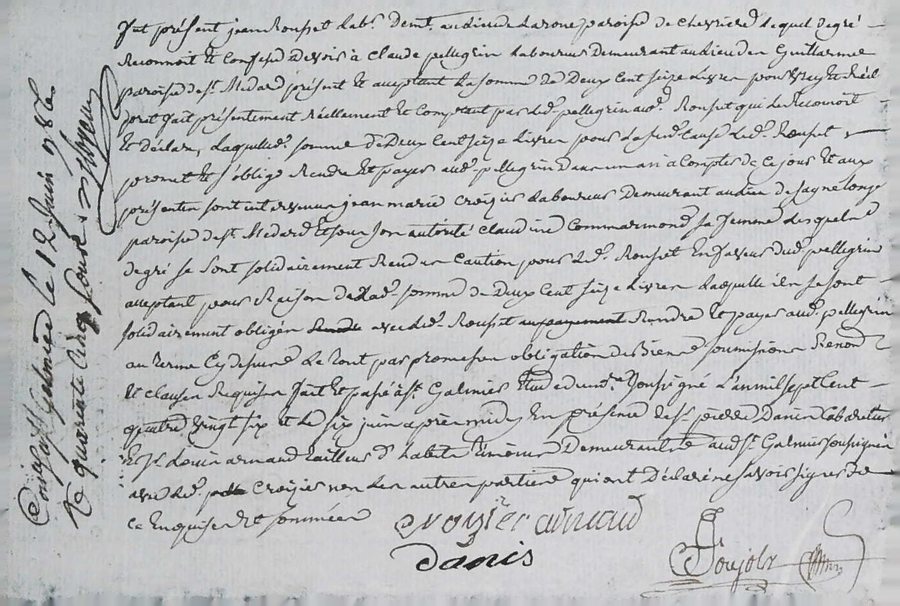 fut présent jean Rouset lab.r dem.t au lieu de la roue paroisse de chevriere lequel degré
Reconnoit et confesse devoir à claude pellegrin laboureur demeurant au lieu du Guillerme
paroisse de s.t Medard présent et acceptant la somme de deux cent seize livres pour vrey et réel
pret fait présentement réellement et comptant par led. pellegrin aud. Rouset qui le reconnoit
et declare, laquelle d. somme de deux cent seize livres pour la susd. cause led. Rouset
promet et s'oblige rendre et payer aud. pellegrin dans un an a compter de ce jour et aux
présentes sont intervenus jean marie croizier laboureur demeurant au lieu de longe
paroisse de s.t Medard et sous son autorité claudine commarmond sa femme lesquels
degré se sont solidairement rendus caution pour led. Rouset en faveur dud. pellegrin
acceptant pour raison de lad. somme de deux cent seize livres laquelle ils se sont
solidairement obligés avec led. Rouset rendre et payer aud. pellegrin
au terme cy dessus le tout par promesses obligation de biens soumissions renon.
et clauses requises fait et passé à s.t Galmier étude du not.re soussigné l'an mil sept cent
quatre vingt six et le six juin après midy en présence de s.r pierre danis cabaretier
et s.r louis arnaud tailleur d'habits témoins demeurants aud. s.t Galmier soussignés
avec led. croizier non les autres parties qui ont déclaré ne savoir signer de
ce enquises et sommées
croyzier arnaud
danis
Poujol
Con.lé à s.t Galmier le 12 juin 1786
R. quarante cinq sous